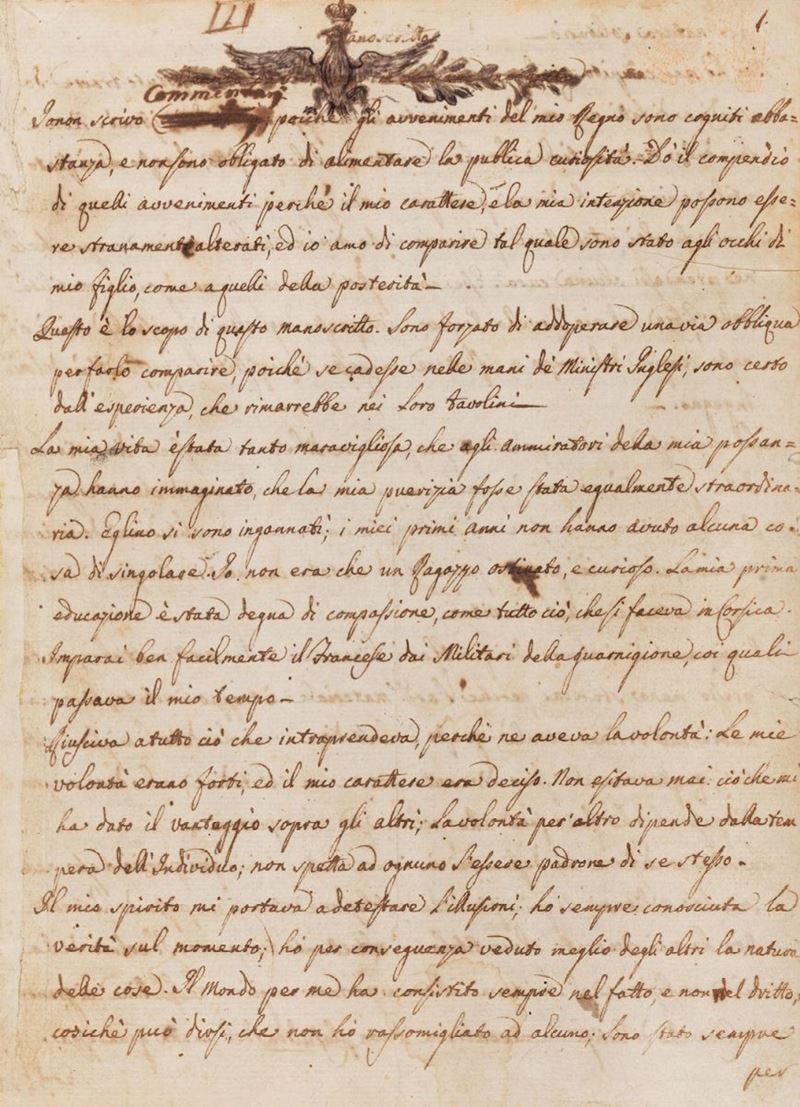 III
1.
Manoscritto
Commentarj
Io non scrivo poichè gli avvenimenti del mio Regno sono cogniti abba=
stanza, e non sono obligato di alimentare la publica curiosità. Dò il compendio
di quelli avvenimenti perchè il mio carattere, e la mia intenzione possono esse=
re stranamente alterati, ed io amo di comparire tal quale sono stato agli occhi di
mio figlio, come a quelli della posterità —
Questo è lo scopo di questo manoscritto. Sono forzato di addoperare una via obbliqua
per farlo comparire, poichè se cadesse nelle mani de' Ministri Inglesi, sono certo
dall'esperienza, che rimarrebbe nei Loro tavolini —
La mia vita è stata tanto maravigliosa, che agli ammiratori della mia possan=
za hanno immaginato, che la mia puerizia fosse stata egualmente straordina=
ria. Eglino si sono ingannati; i miei primi anni non hanno avuto alcuna co=
sa di singolare. Io non era che un Ragazzo ostinato, e curioso. La mia prima
educazione è stata degna di compassione, come tutto ciò, che si faceva in Corsica.
Imparai ben facilmente il Francese dai Militari della guarnigione, coi quali
passava il mio tempo —
Riusciva a tutto ciò che intraprendeva, perchè ne aveva la volontà: Le mie
volontà erano forti, ed il mio carattere era deciso. Non esitava mai: ciò che mi
ha dato il vantaggio sopra gli altri; La volontà per altro dipende dalla tem
pera dell'Individuo; non spetta ad ognuno l'essere padrone di se stesso.
Il mio spirito mi portava a detestare l'illusioni; hò sempre conosciuta la
verità sul momento; hò per conseguenza veduto meglio degli altri la natura
delle cose. Il Mondo per me ha consistito sempre nel fatto, e non nel dritto,
cosichè può dirsi, che non hò rassomigliato ad alcuno; Sono stato sempre
per